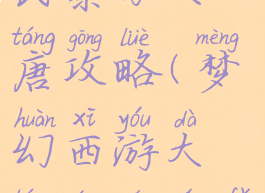 táng gōng lüè mèng
唐攻略(梦
huàn xī yóu dà
幻西游大